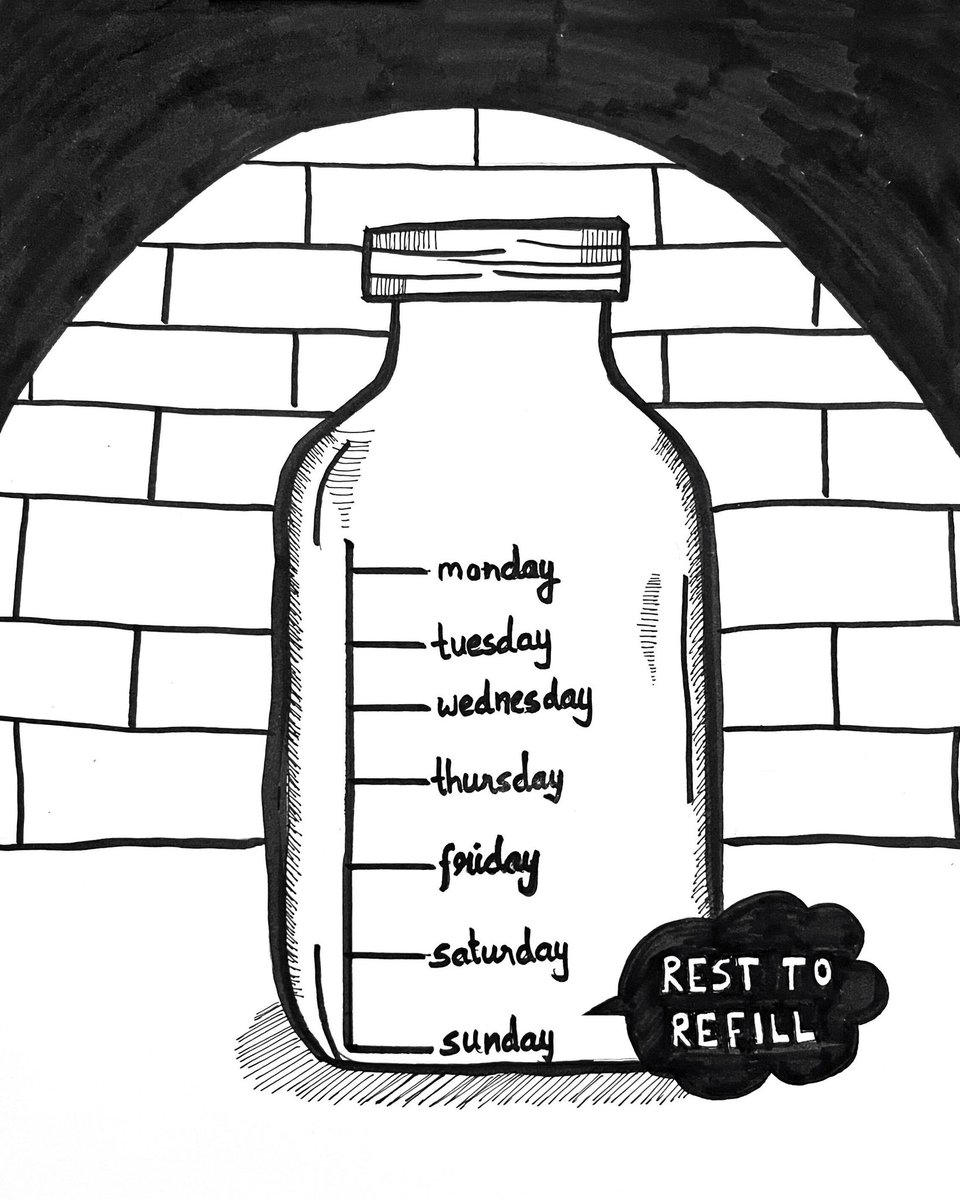 monday
tuesday
wednesday
thursday
friday
saturday
sunday
REST TO
REFILL